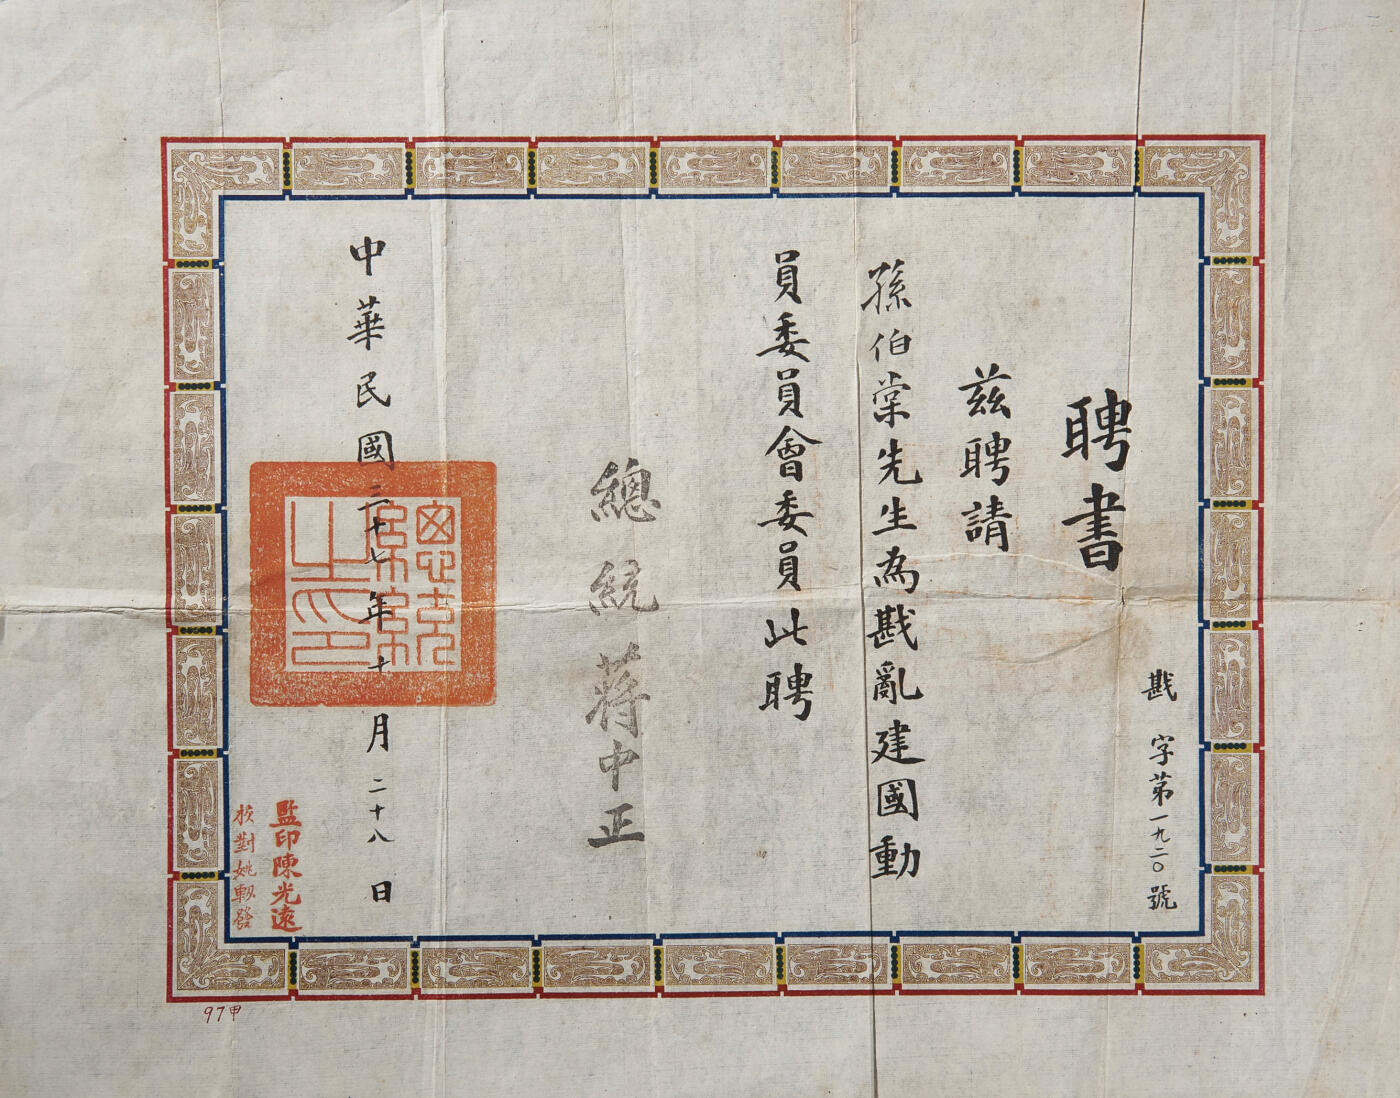 戡字第一九二〇號
聘書
茲聘請
孫伯棠先生為戡亂建國動
員委員會委員此聘
總統蔣中正
中華民國三十七年十月二十八日
總統
府榮
之印
監印陳光遠
校對姚
發
97甲